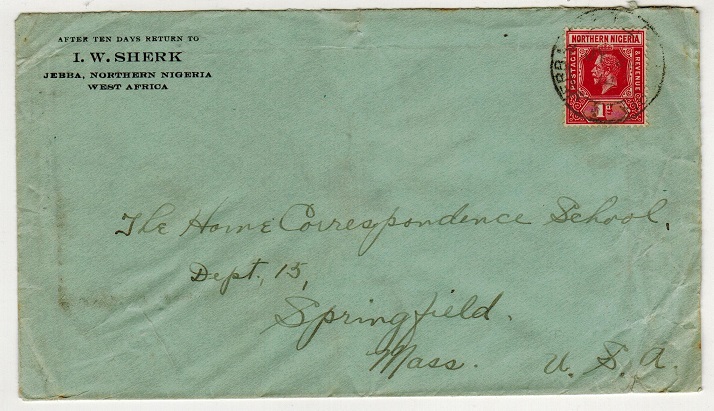 AFTER TEN DAYS RETURN TO
I. W. SHERK
JEBBA, NORTHERN NIGERIA
WEST AFRICA
NORTHERN NIGERIA
POSTAGE
& REVENUE
1d
The Home Correspondence School,
Dept. 15,
Springfield.
Mass. U. S. A.